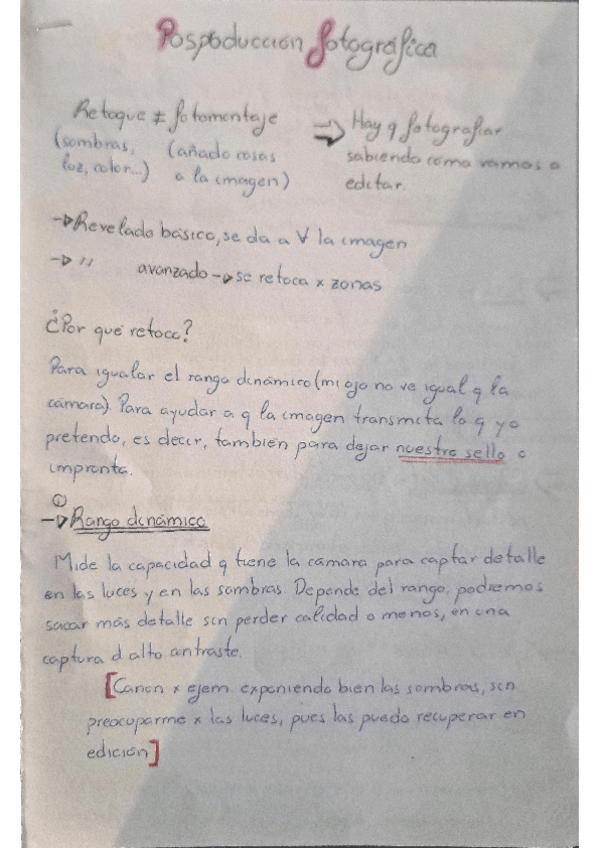 Pospoducción fotográfica
Retoque ≠ fotomontaje
(sombras, luz, color...)
(añado cosas a la imagen)
⇒ Hay q fotografiar
sabiendo como vamos a
editar.
→ Revelado básico, se da a ∀ la imagen
→ " avanzado → se retoca x zonas
¿Por qué retoca?
Para igualar el rango dinámico (mi ojo no ve igual q la
cámara). Para ayudar a q la imagen transmita lo q yo
pretendo, es decir, también para dejar nuestro sello o
impronta.
①
→ Rango dinámico
Mide la capacidad q tiene la cámara para captar detalle
en las luces y en las sombras. Depende del rango, podremos
sacar más detalle sin perder calidad o menos, en una
captura d alto contraste.
[Canon x ejem. exponiendo bien las sombras, sin
preocuparme x las luces, pues las puedo recuperar en
edición]